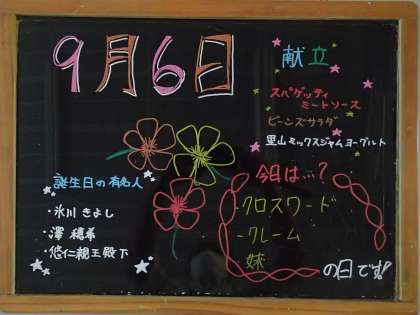 9月6日
献立
スパゲッティ
ミートソース
ビーンズサラダ
里山ミックスジャムヨーグルト
誕生日の有名人
・氷川きよし
・澤 穂希
・悠仁親王殿下
今日は…?
クロスワード
・クレーム
妹
の日です!